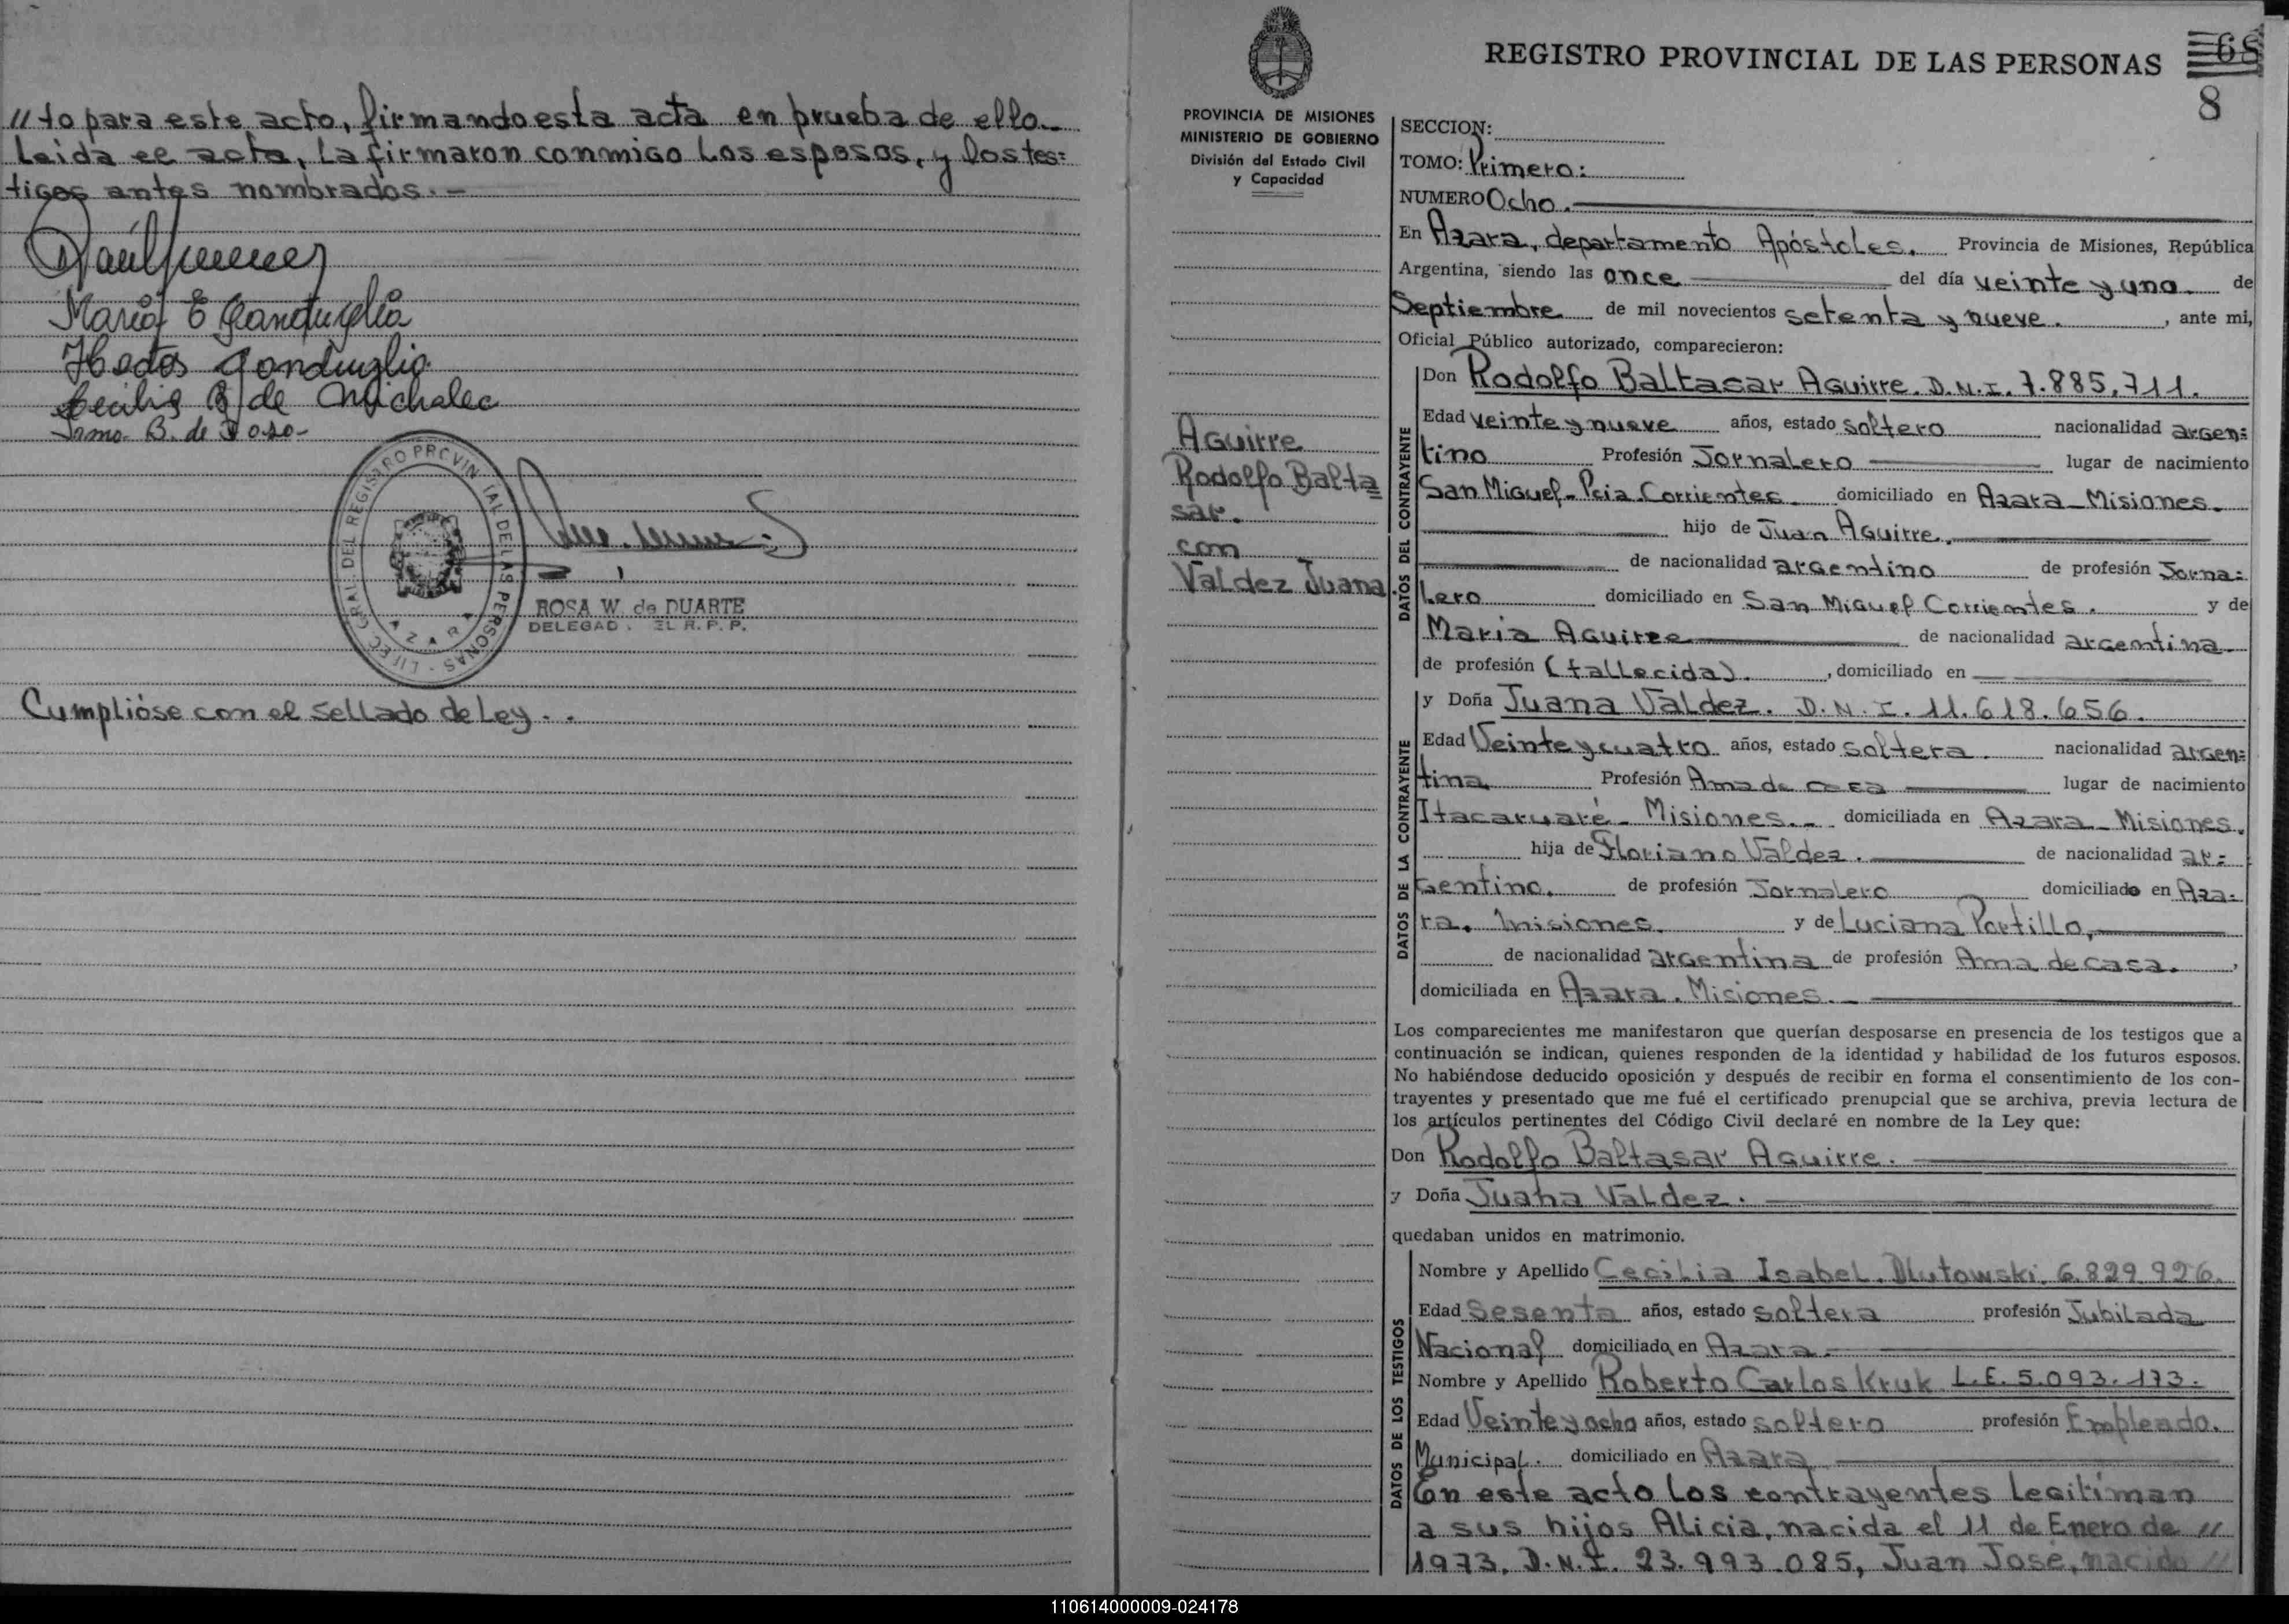 // to para este acto, firmando esta acta en prueba de ello.-
Leida el acta, La firmaron conmigo Los esposos, y los tes=
tigos antes nombrados.-
Maria E Ganduglia
Ganduglia
B de Michalec
B. de
REGISTRO PROVINCIAL DE LAS PERSONAS
AZARA
ROSA W. de DUARTE
DELEGAD. EL R. P. P.
Cumplióse con el sellado de Ley. .
REGISTRO PROVINCIAL DE LAS PERSONAS
68
8
PROVINCIA DE MISIONES
MINISTERIO DE GOBIERNO
División del Estado Civil
y Capacidad
Aguirre
Rodolfo Balta=
sar.
con
Valdez Juana.
SECCION:
TOMO: Primero:
NUMERO Ocho.
En Azara, departamento Apóstoles. Provincia de Misiones, República
Argentina, siendo las once del día veinte y uno de
Septiembre de mil novecientos setenta y nueve. , ante mi,
Oficial Público autorizado, comparecieron:
DATOS DEL CONTRAYENTE
Don Rodolfo Baltasar Aguirre. D.N.I. 7.885.711.
Edad veinte y nueve años, estado soltero nacionalidad argen=
tino Profesión Jornalero lugar de nacimiento
San Miguel-Pcia.Corrientes. domiciliado en Azara-Misiones.
hijo de Juan Aguirre.
de nacionalidad argentino de profesión Jorna=
lero domiciliado en San Miguel Corrientes. y de
Maria Aguirre de nacionalidad argentina
de profesión (fallecida). , domiciliado en
DATOS DE LA CONTRAYENTE
y Doña Juana Valdez. D.N.I. 11.618.656.
Edad Veinte y cuatro años, estado soltera. nacionalidad argen=
tina Profesión Ama de casa lugar de nacimiento
Itacaruaré- Misiones.- domiciliada en Azara-Misiones.
hija de Floriano Valdez. de nacionalidad ar=
gentino. de profesión Jornalero domiciliado en Aza=
ra. Misiones. y de Luciana Portillo,
de nacionalidad argentina de profesión Ama de casa. ,
domiciliada en Azara. Misiones.-
Los comparecientes me manifestaron que querían desposarse en presencia de los testigos que a
continuación se indican, quienes responden de la identidad y habilidad de los futuros esposos.
No habiéndose deducido oposición y después de recibir en forma el consentimiento de los con-
trayentes y presentado que me fué el certificado prenupcial que se archiva, previa lectura de
los artículos pertinentes del Código Civil declaré en nombre de la Ley que:
Don Rodolfo Baltasar Aguirre.
y Doña Juana Valdez.
quedaban unidos en matrimonio.
DATOS DE LOS TESTIGOS
Nombre y Apellido Cecilia Isabel. Dlutowski. 6.829.926.
Edad Sesenta años, estado soltera profesión Jubilada
Nacional domiciliada en Azara.
Nombre y Apellido Roberto Carlos Kruk L.E. 5.093.173.
Edad Veinte y ocho años, estado soltero profesión Empleado.
Municipal. domiciliado en Azara
En este acto Los contrayentes Legitiman
a sus hijos Alicia, nacida el 11 de Enero de //
1973. D.N.I. 23.993.085, Juan José, nacido //
110614000009-024178